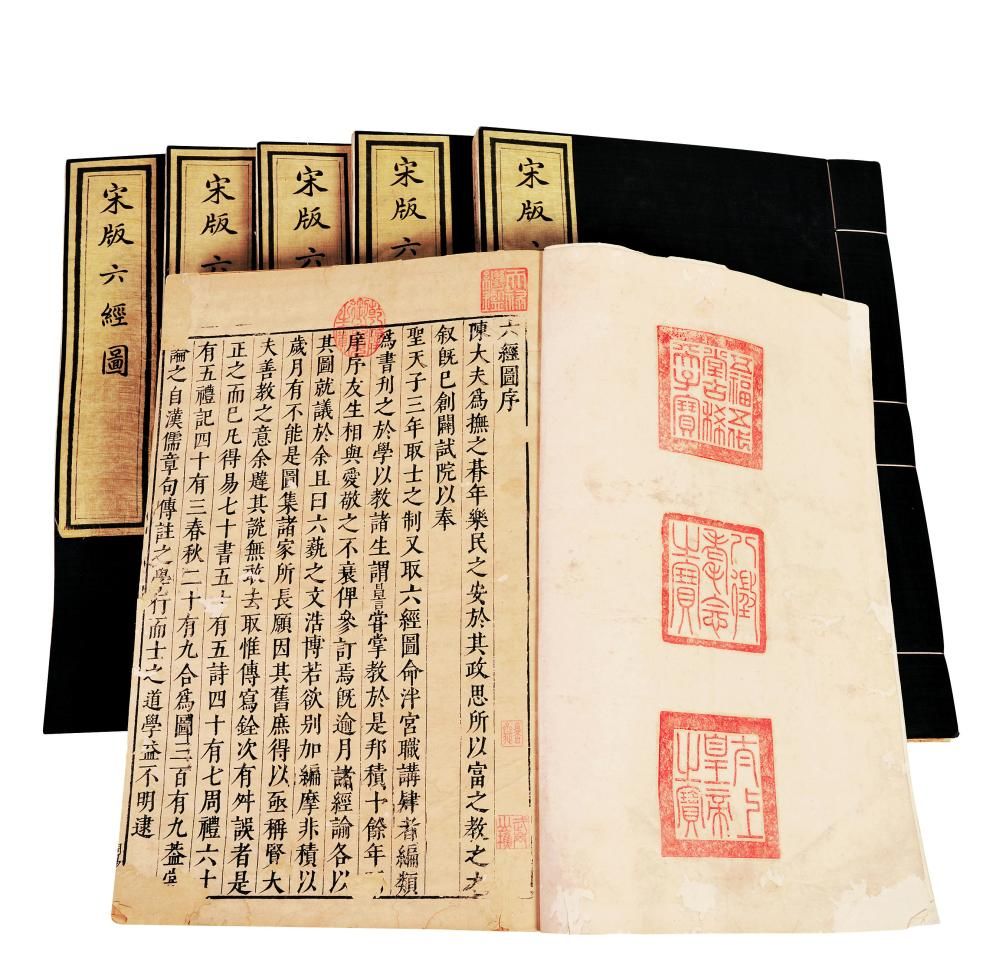 宋版六經圖
宋版六
宋版六
宋版六
宋版
六經圖序
陳大夫爲撫之朞年樂民之安於其政思所以富之教之之
叙旣已創闢試院以奉
聖天子三年取士之制又取六經圖命泮宮職講肄者編類
爲書刋之於學以教諸生謂昌言嘗掌教於是邦積十餘年
庠序友生相與愛敬之不衰俾參訂焉旣逾月諸經論各以
其圖就議於余且曰六蓺之文浩博若欲别加編摩非積以
歲月有不能是圖集諸家所長願因其舊庶得以亟稱賢大
夫善教之意余韙其說無敢去取惟傳寫銓次有舛誤者是
正之而已凡得易七十書五十有五詩四十有七周禮六十
有五禮記四十有三春秋二十有九合爲圖三百有九葢嘗
論之自漢儒章句傳註之學行而士之道學益不明逮
五福五代堂古稀天子寶
八徵耄念之寶
太上皇帝之寶